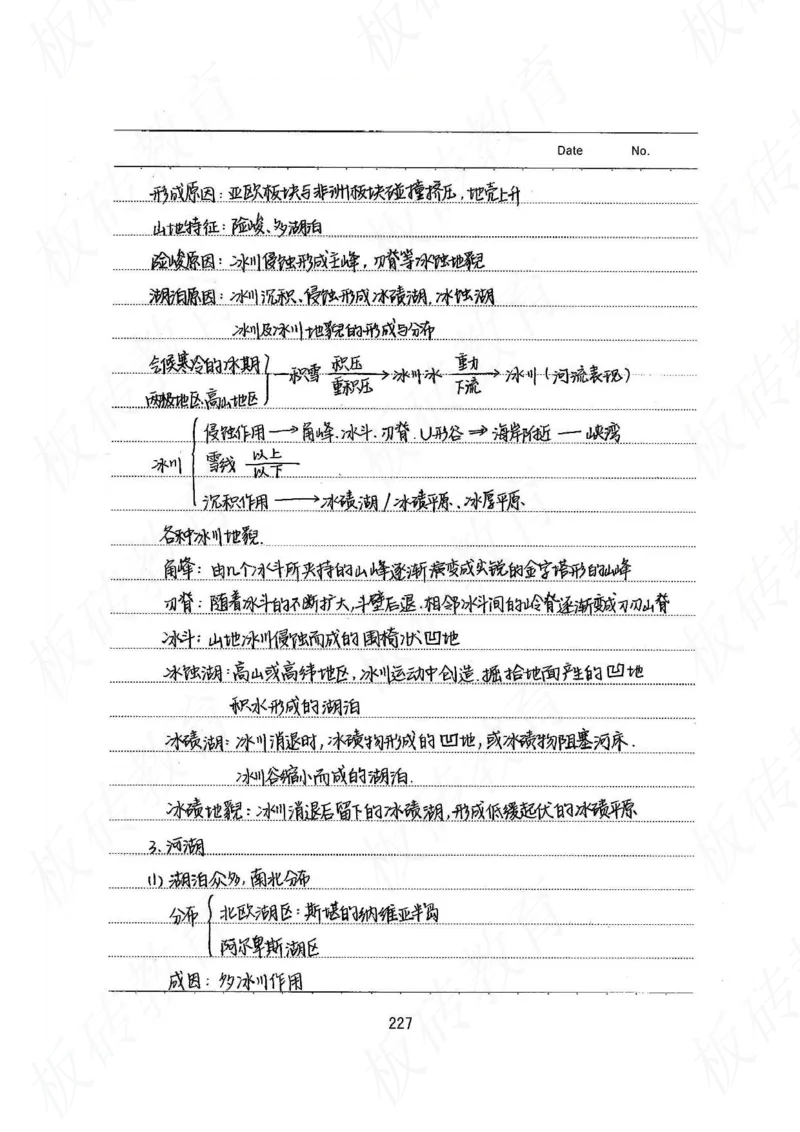 Date No.
形成原因：亚欧板块与非洲板块碰撞挤压，地壳上升
山地特征：险峻、多湖泊
险峻原因：冰川侵蚀形成主峰，刃脊等冰蚀地貌
湖泊原因：冰川沉积、侵蚀形成冰碛湖，冰蚀湖
冰川及冰川地貌的形成与分布
气候寒冷的冰期
两极地区、高山地区 } — 积雪 积压/重积压 → 冰川冰 重力/下流 → 冰川（河流表现）
冰川 { 侵蚀作用 → 角峰、冰斗、刃脊、U形谷 ⇒ 海岸附近 — 峡湾
雪线 以上/以下
沉积作用 → 冰碛湖 / 冰碛平原、冰厚平原
各种冰川地貌.
角峰：由几个冰斗所夹持的山峰逐渐演变成尖锐的金字塔形的山峰
刃脊：随着冰斗的不断扩大，斗壁后退，相邻冰斗间的岭脊逐渐变成刀刃山脊
冰斗：山地冰川侵蚀而成的围椅状凹地
冰蚀湖：高山或高纬地区，冰川运动中创造、掘拾地面产生的凹地
积水形成的湖泊
冰碛湖：冰川消退时，冰碛物形成的凹地，或冰碛物阻塞河床.
冰川谷缩小而成的湖泊.
冰碛地貌：冰川消退后留下的冰碛湖，形成低缓起伏的冰碛平原
3. 河湖
(1) 湖泊众多，南北分布
分布 { 北欧湖区：斯堪的纳维亚半岛
阿尔卑斯湖区
成因：多冰川作用
227
板砖教育